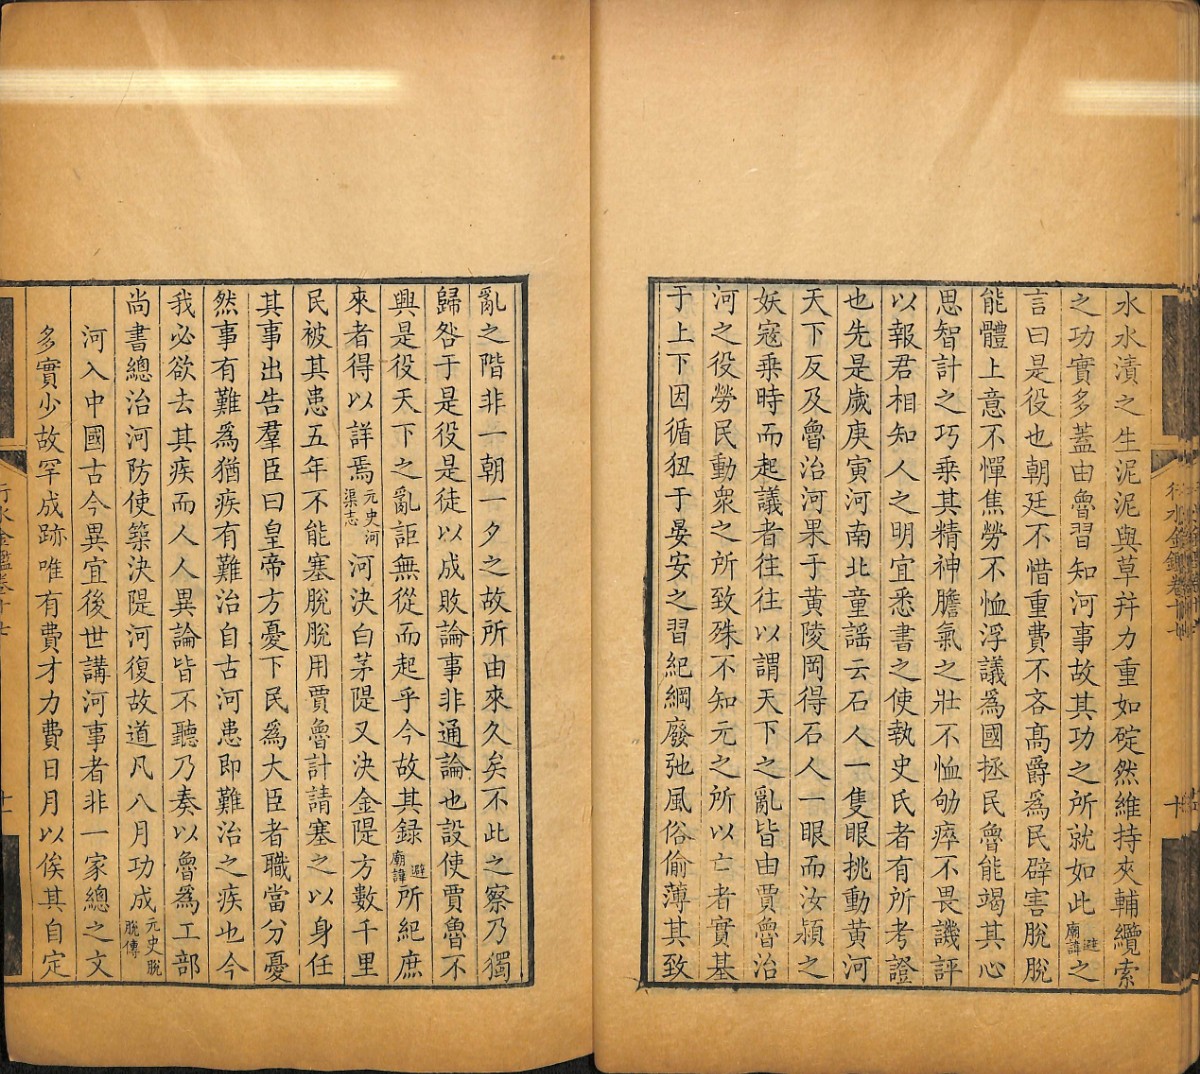 水水漬之生泥泥與草幷力重如碇然維持夾輔纜索
之功實多蓋由魯習知河事故其功之所就如此避廟諱之
言曰是役也朝廷不惜重費不吝高爵爲民辟害脫脫
能體上意不憚焦勞不恤浮議爲國拯民魯能竭其心
思智計之巧乗其精神膽氣之壯不恤劬瘁不畏譏評
以報君相知人之明宜悉書之使執史氏者有所考證
也先是歲庚寅河南北童謠云石人一隻眼挑動黃河
天下反及魯治河果于黃陵岡得石人一眼而汝潁之
妖寇乗時而起議者往往以謂天下之亂皆由賈魯治
河之役勞民動衆之所致殊不知元之所以亡者實基
于上下因循狃于晏安之習紀綱廢弛風俗偷薄其致
行水金鑑卷十七
十
亂之階非一朝一夕之故所由來久矣不此之察乃獨
歸咎于是役是徒以成敗論事非通論也設使賈魯不
興是役天下之亂詎無從而起乎今故其録避廟諱所紀庶
來者得以詳焉元史河渠志 河決白茅隄又決金隄方數千里
民被其患五年不能塞脫脫用賈魯計請塞之以身任
其事出告羣臣曰皇帝方憂下民爲大臣者職當分憂
然事有難爲猶疾有難治自古河患即難治之疾也今
我必欲去其疾而人人異論皆不聽乃奏以魯爲工部
尚書總治河防使築決隄河復故道凡八月功成元史脫脫傳
河入中國古今異宜後世講河事者非一家總之文
多實少故罕成跡唯有費才力費日月以俟其自定
行水金鑑卷十七
十一